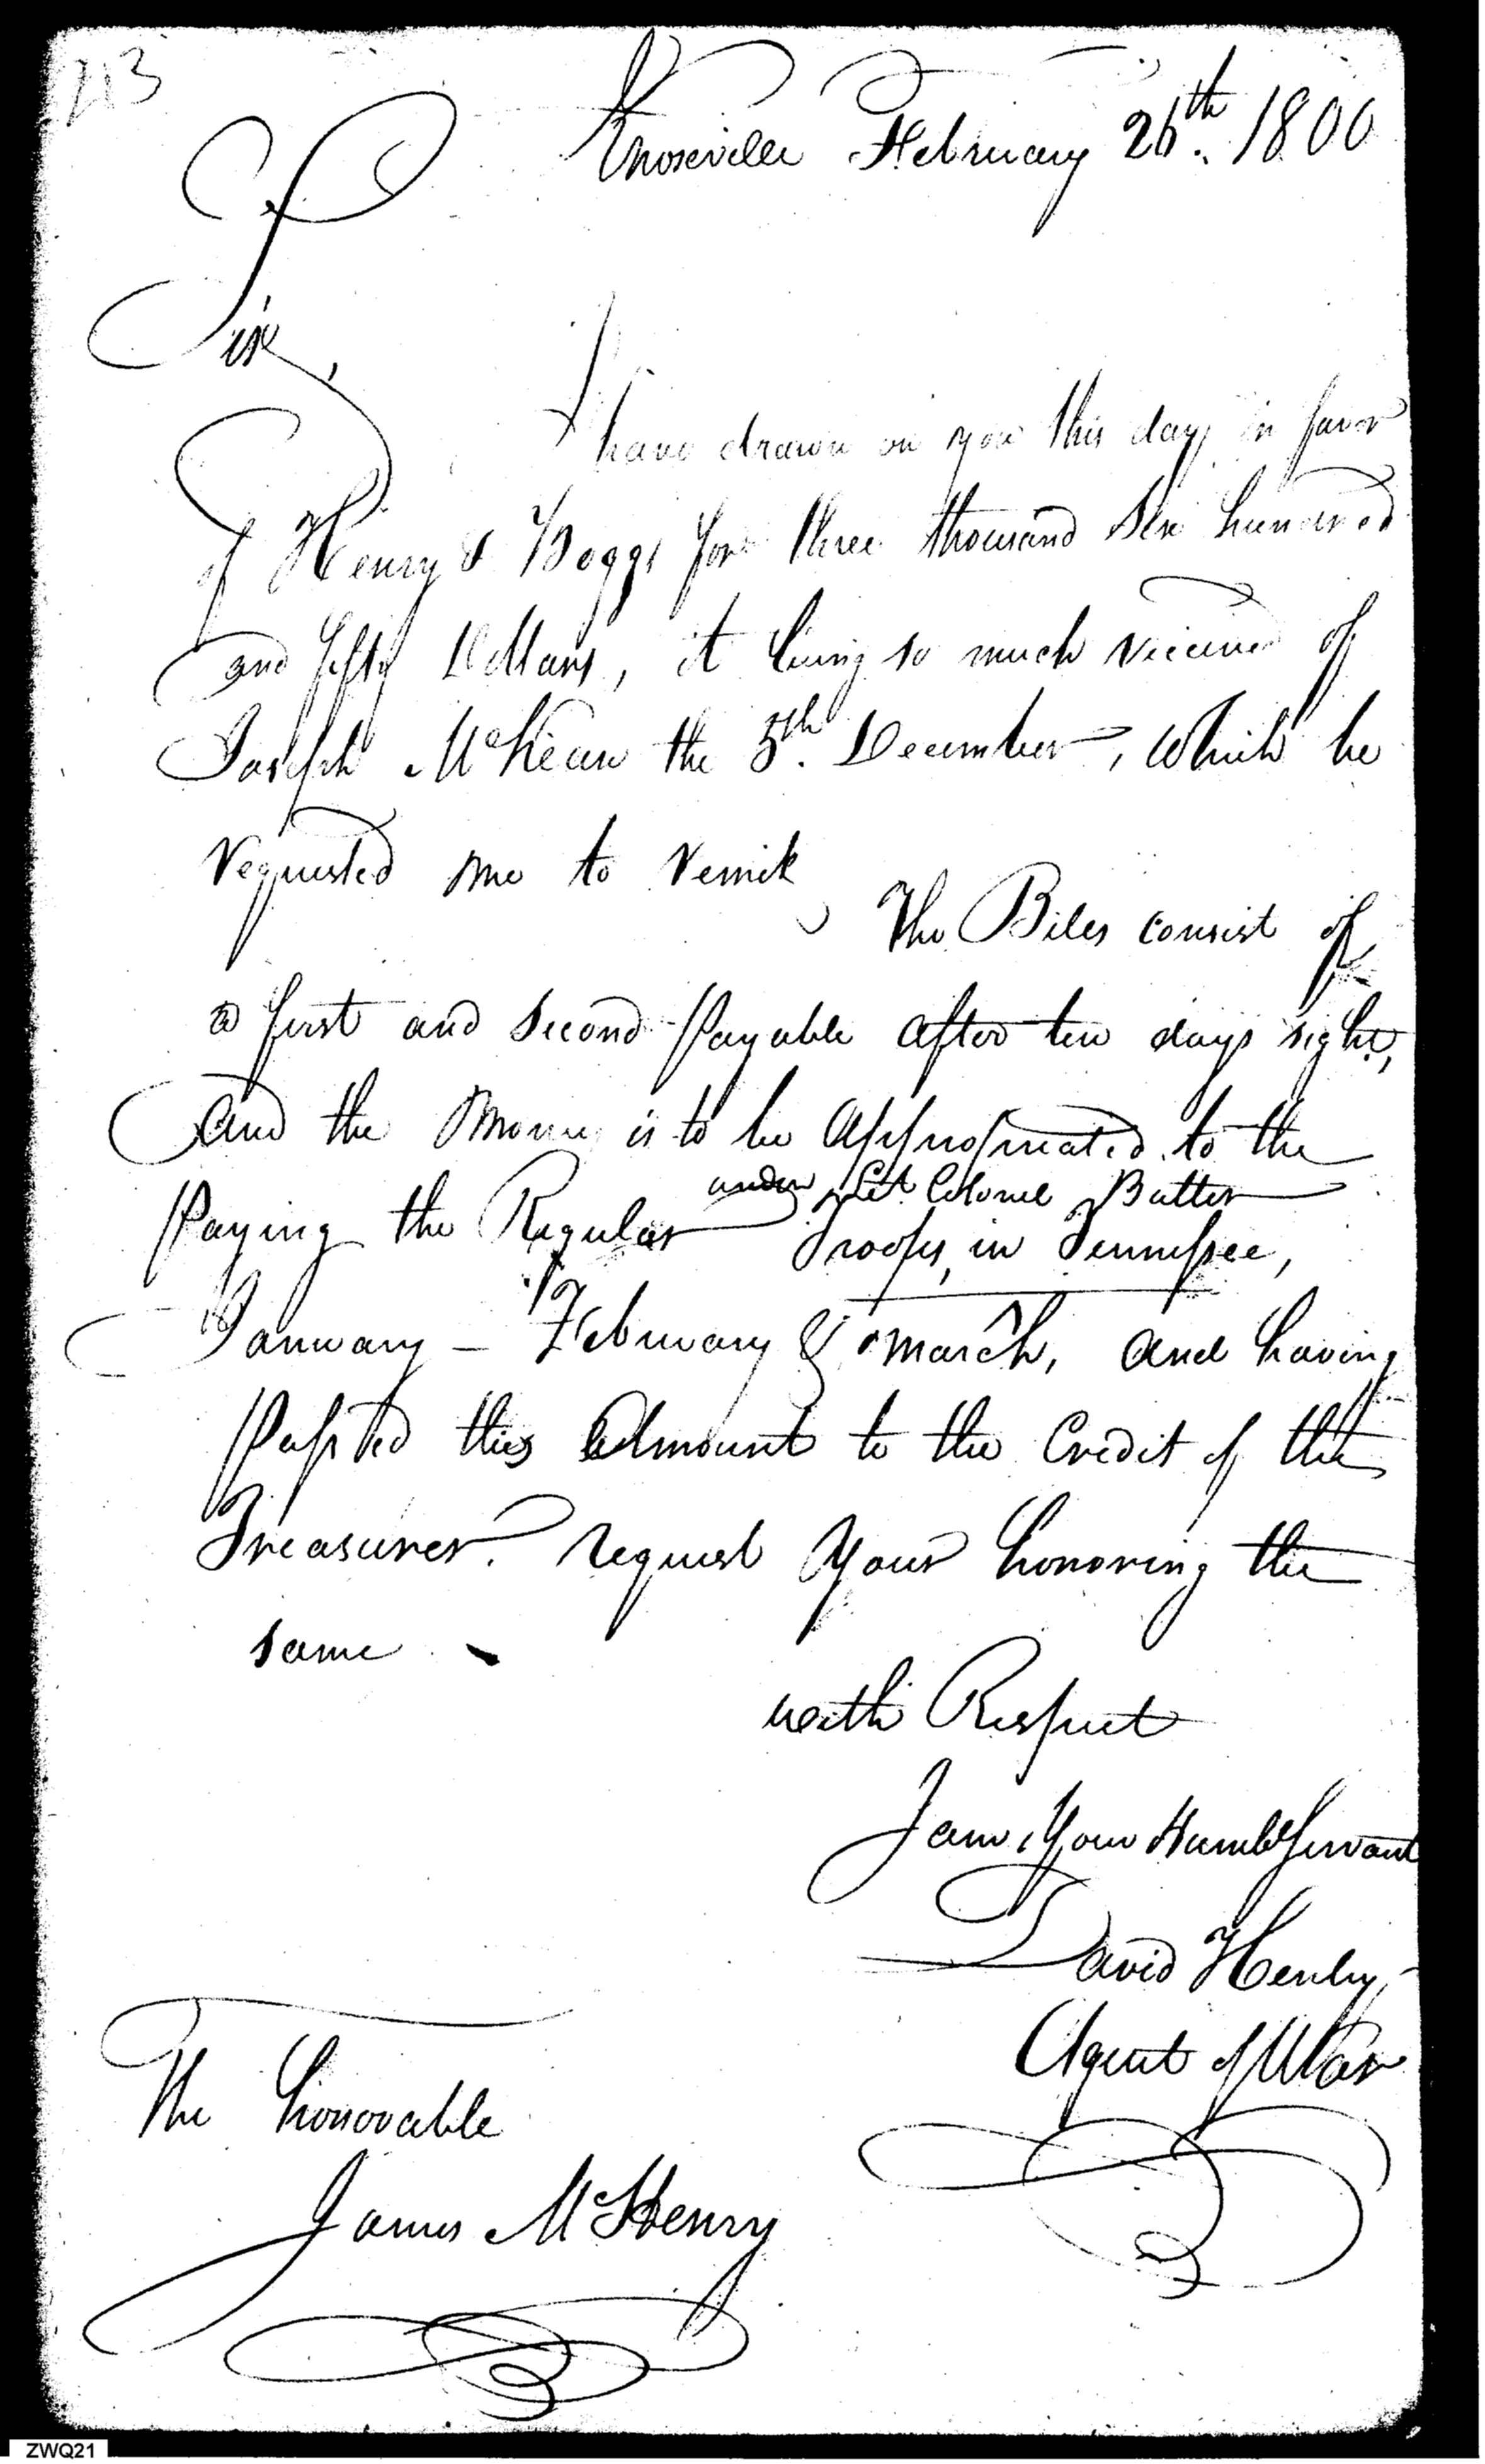 213
Knoxville February 26th. 1800
Sir,
I have drawn on you this day in favor
of Henry & Boggs for three thousand Six hundred
and fifty Dollars, it being so much received of
Joseph McKean the 5th. December, which he
requested me to remit
The Biles consist of
a first and second Payable after ten days sight,
and the Money is to be Appropriated to the
under Lt Colonel Butler
Paying the Regular Troops, in Tennessee,
January - February & March, and having
Passed this Amount to the Credit of the
Treasurer. request your honoring the
same
with Respect
I am, Your Humble Servant
David Henley,
Agent of War
The honorable
James McHenry
ZWQ21